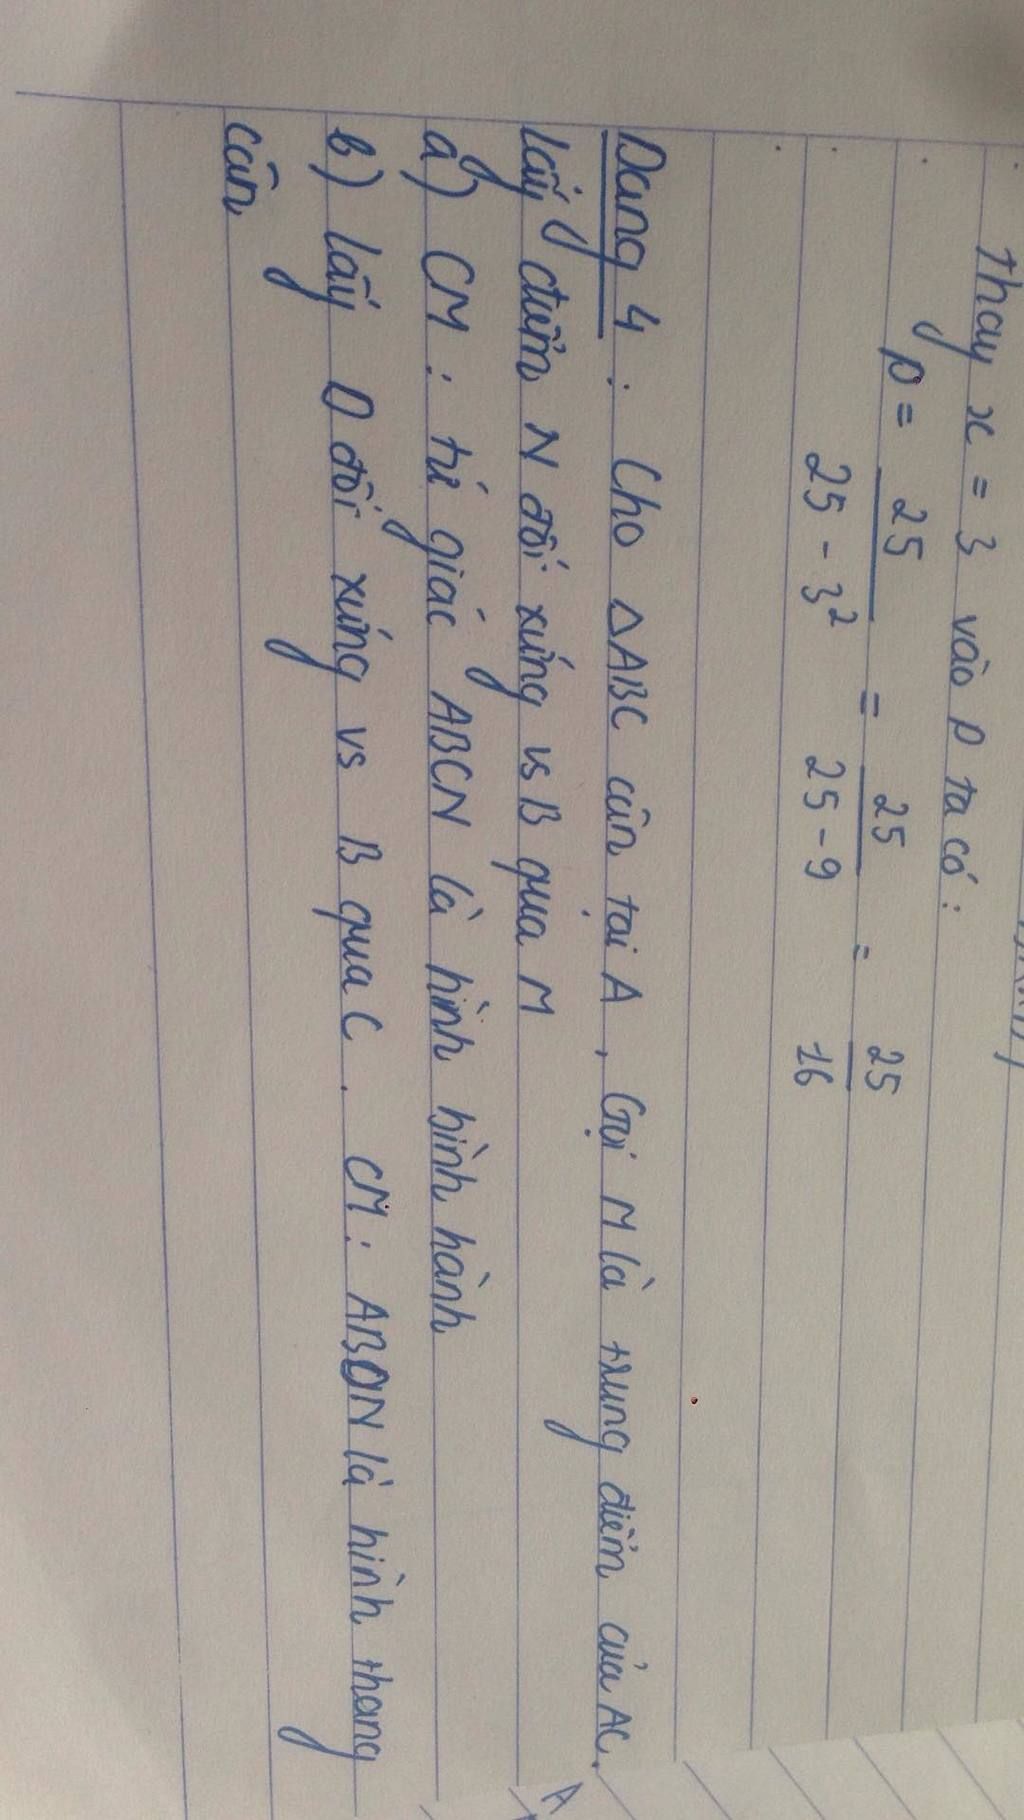 Thay x = 3 vào P ta có:
P = 25/(25 - 3²) = 25/(25 - 9) = 25/16
Dạng 4: Cho ΔABC cân tại A, Gọi M là trung điểm của AC.
Lấy điểm N đối xứng vs B qua M
a) CM: tứ giác ABCN là hình bình hành
b) lấy D đối xứng vs B qua C. CM: ABDN là hình thang
cân
A